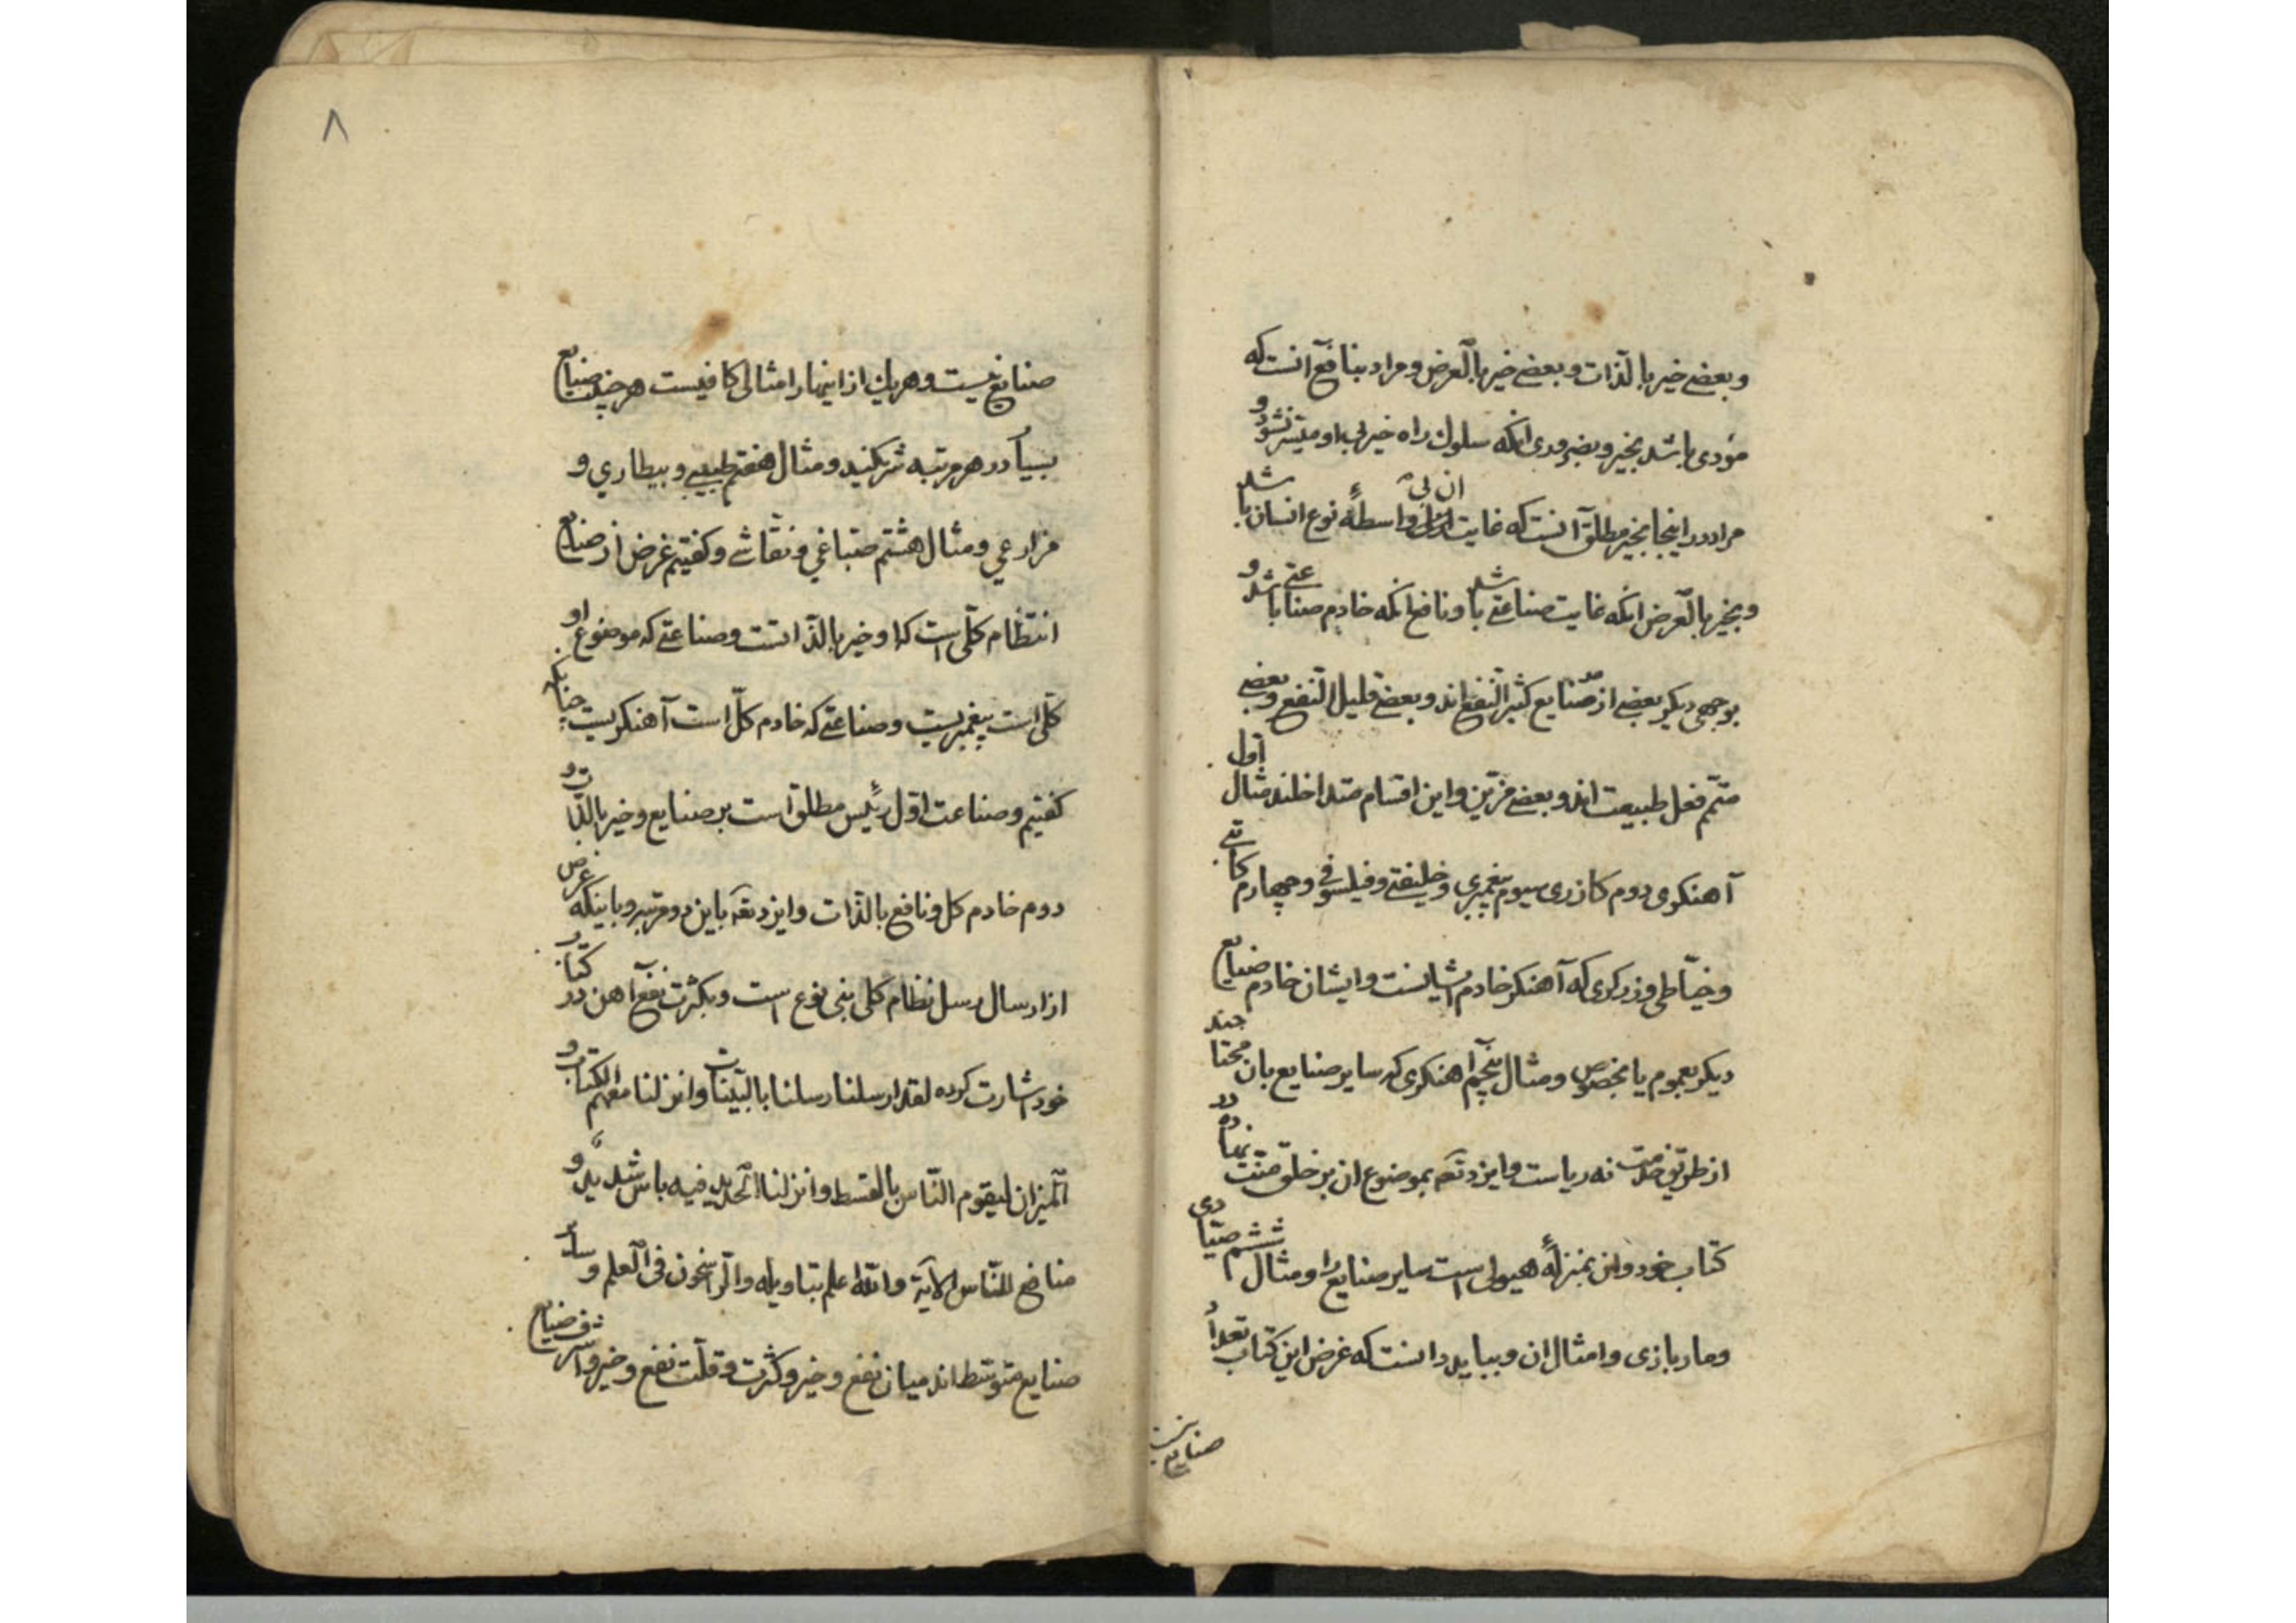 وبعضے خیر بالذات وبعضے خیر بالعرض ومراد بنافع آنست که
مؤدی باشد بخیر وبضروری انکه سلوك راه خیر بی او میسر نشود و
مراد در اینجا بخیر مطلق آنست که غایت ان بی واسطهٔ نوع انسان باشد
وبخیر بالعرض انکه غایت صناعتے باشد ونافع انکه خادم صناعتے باشد و
بوجهی دیکر بعضے از صنایع کثیر النفع اند وبعضے قلیل النفع وبعضے
متمم فعل طبیعت اند وبعضے مزین واین اقسام متداخلند مثال اول
آهنکری دوم کازری سیوم پیغمبری وخلیفتے وفیلسوفی وچهارم کاتبے
وخیاطی وزرکری که آهنکر خادم ایشانست وایشان خادم صنایع
دیکر بعموم یا بخصوص ومثال پنجم آهنکری که سایر صنایع بان محتاجند
از طریق خدمت نه ریاست وایزد تعہ بموضوع ان بر خلق منت نهاده در
کتاب خود وان بمنزلهٔ هیولی است سایر صنایع را ومثال ششم صیادی
ومار بازی وامثال ان وبباید دانست که غرض این کتاب تعداد
صنایع نیست
٨
صنایع نیست وهریك از اینها را مثالی کافیست هرچند صنایع
بسیار در هر مرتبه شریکند ومثال هفتم طبیبے وبیطاري و
مزارعي ومثال هشتم صباغي ونقاشے وکفتیم غرض از صنایع
انتظام کلی است که او خیر بالذاتست وصناعتے که موضوع او
کلی است پیغمبریست وصناعتے که خادم کل است آهنکریست چنانکه
کفتیم وصناعت اول رئیس مطلق است بر صنایع وخیر بالذات و
دوم خادم کل ونافع بالذات وایزد تعہ باین دو مرتبه وباینکه غرض
از ارسال رسل نظام کلی بنی نوع است وبکثرت نفع آهن در کتاب
خود اشارت کرده لقد ارسلنا رسلنا بالبینات وانزلنا معهم الکتاب و
المیزان لیقوم الناس بالقسط وانزلنا الحدید فیه باس شدید و
منافع للناس الآیة والله اعلم بتاویله والراسخون فی العلم وسایر
صنایع متوسط اند میان نفع وخیر وکثرت وقلت نفع وخیر واشرف صنایع